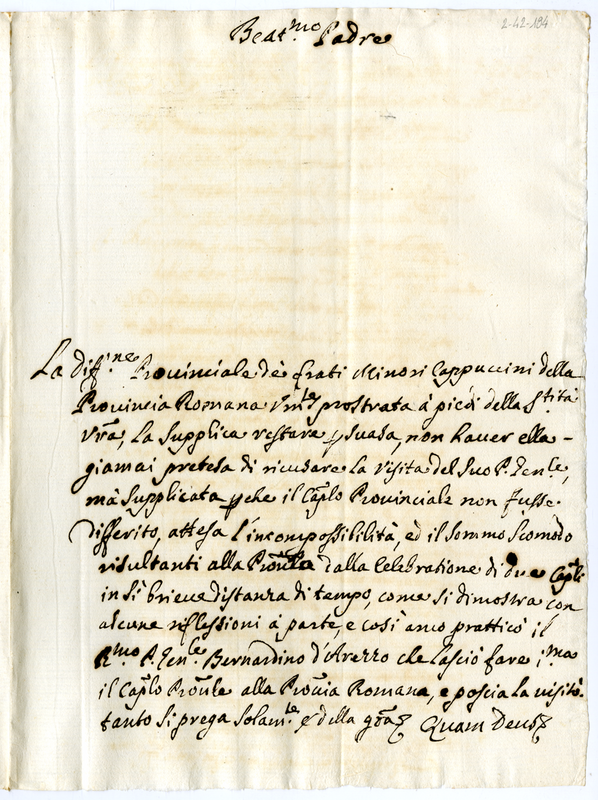 Beat.mo Padre
2-42-184
La diff.ne Provinciale de frati Minori Cappuccini della
Provincia Romana Um.te prostrata à piedi della S.tità
Vra, la supplica restare psuasa, non haver ella -
giamai pretesa di ricusare la visita del suo P. Gen.le,
mà supplicata pche il Caplo Provinciale non fusse
differito, attesa l'incompossibilità, ed il sommo scomodo
risultanti alla dalla Celebratione di due Capli
in sì brieve distanza di tempo, come si dimostra con
alcune riflessioni à parte, e così anco pratticò il
R.mo P. Gen.le Bernardino d'Arezzo che lasciò fare p.ma
il Caplo Pronle alla Proncia Romana, e poscia la visitò.
tanto si prega solam.te e della gra Quam Deus